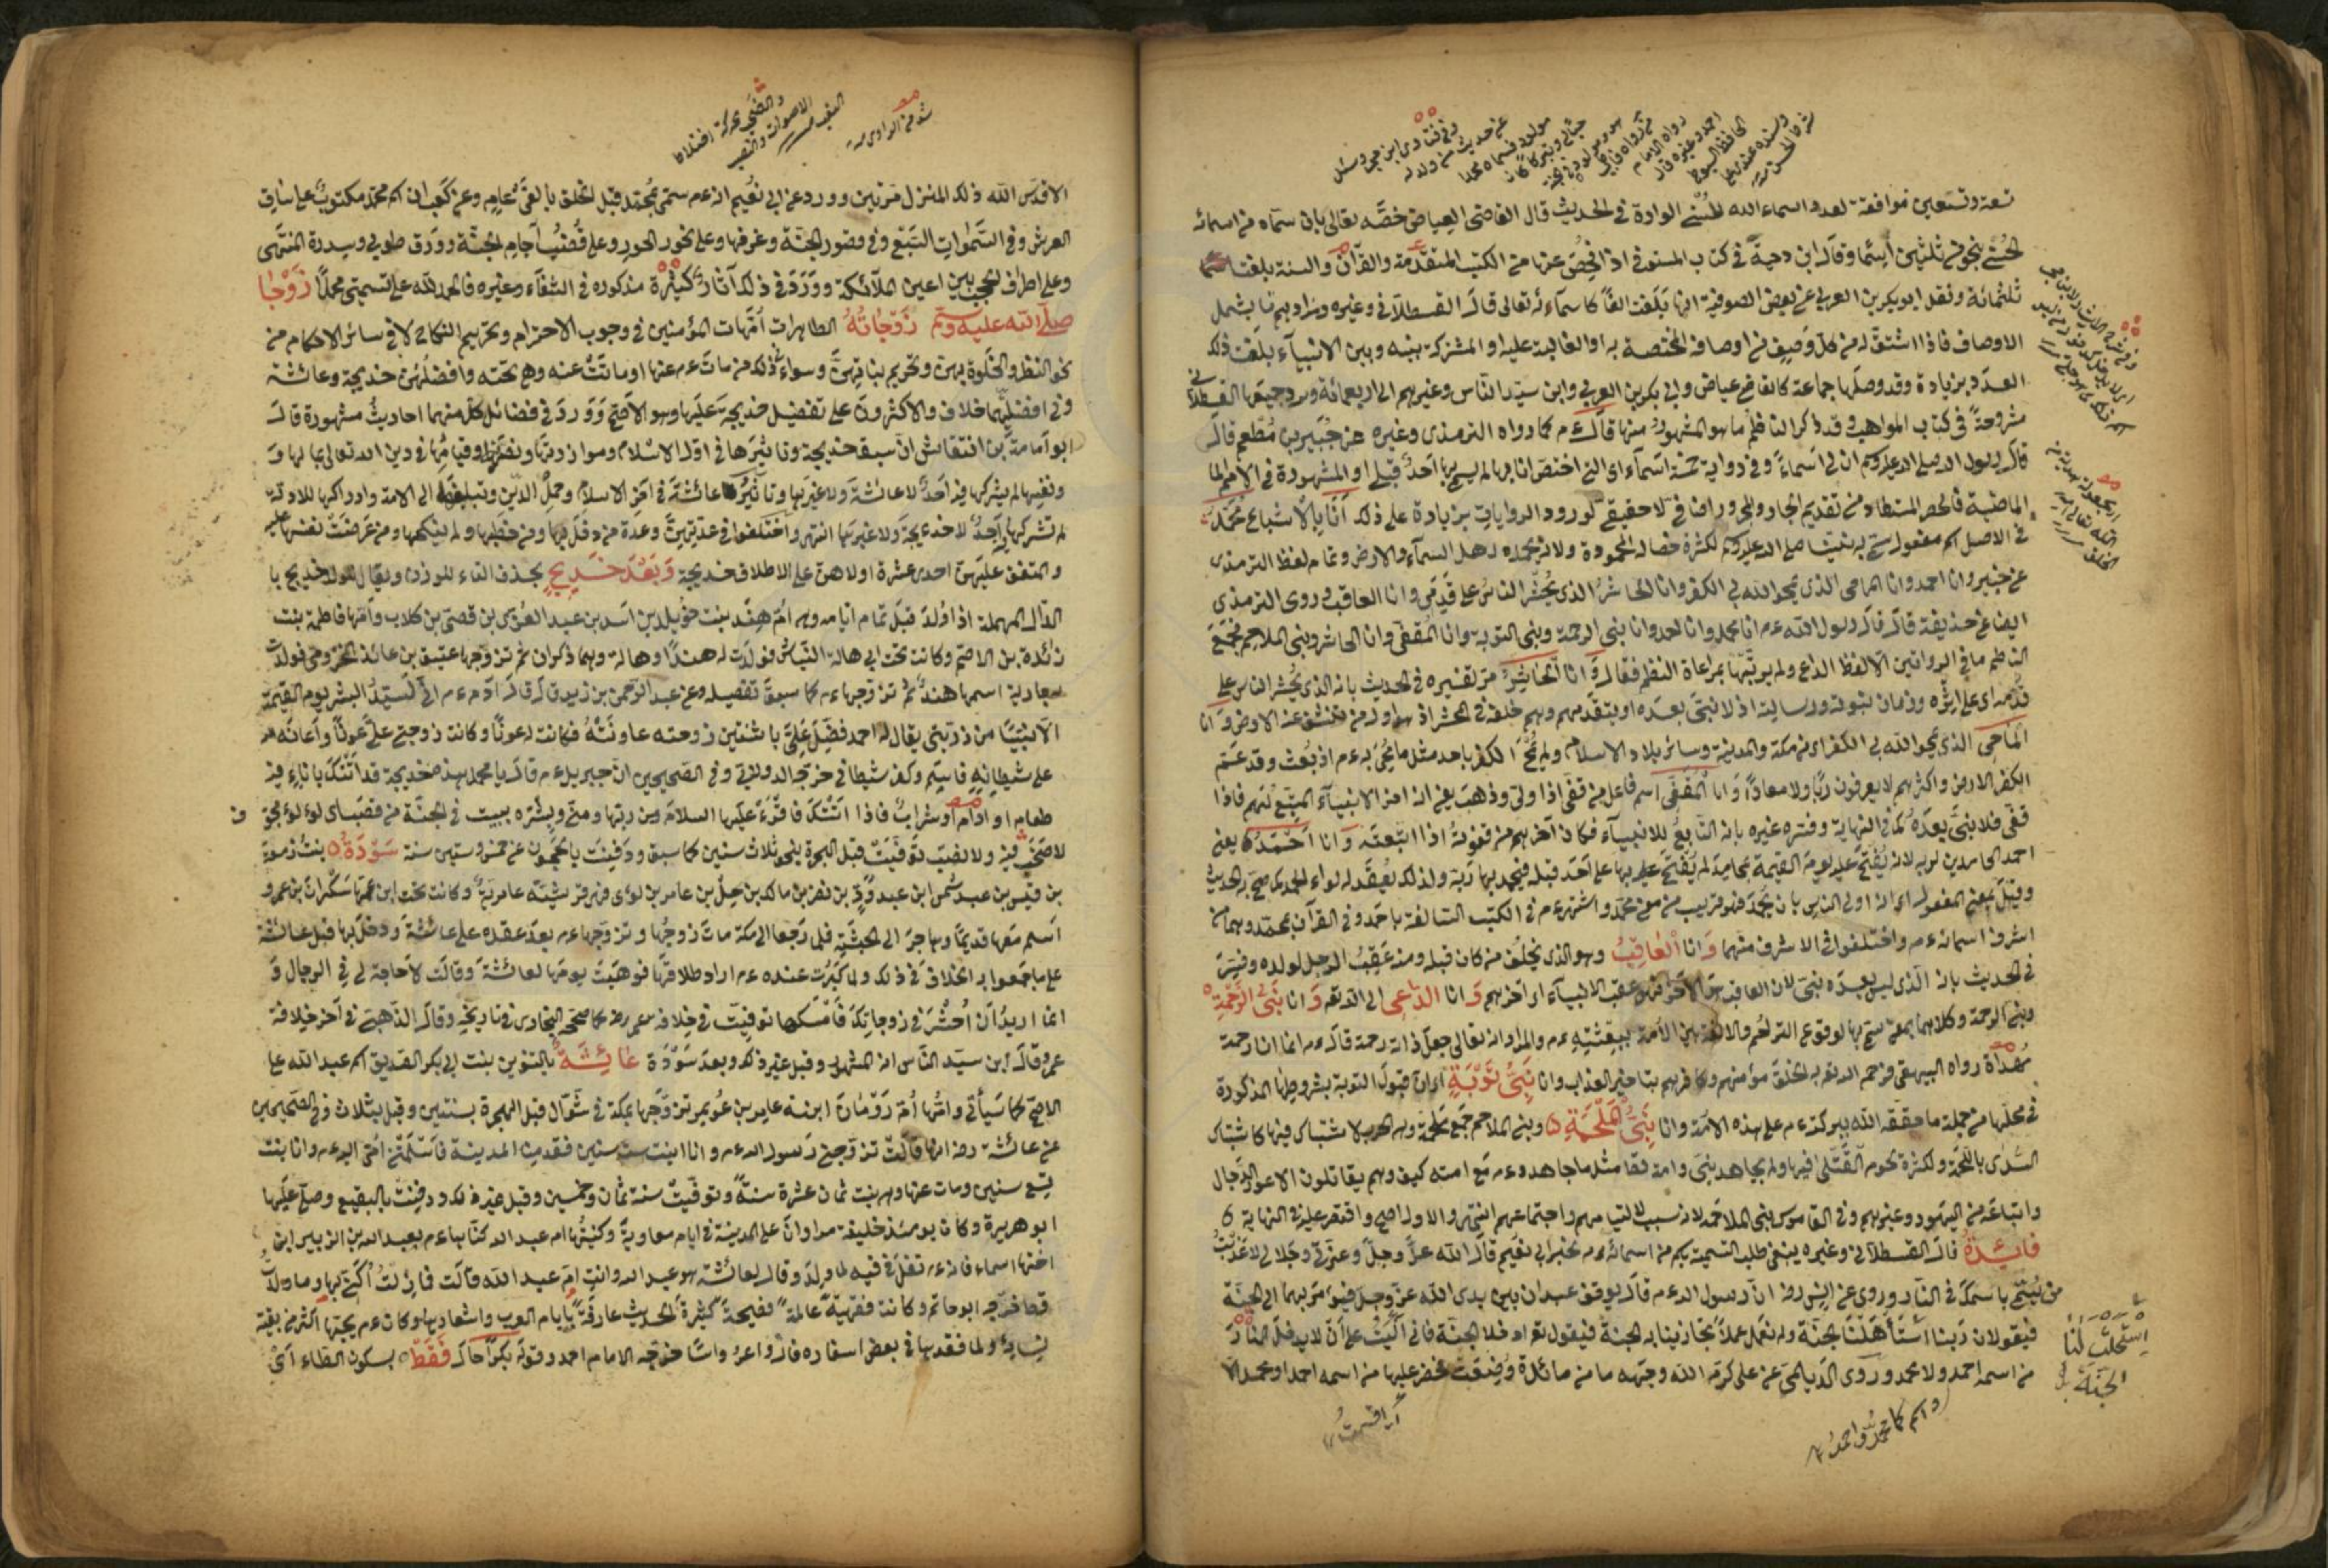 تسعة وتسعين موافقة لعدد اسماء الله الحسنى الواردة في الحديث قال القاضى العياض خصه تعالى بان سماه من اسمائه
الحسنى بنحو من ثلثين اسما وقال ابن دحية في كتاب المستوفى اذا فحص عنها من الكتب المتقدمة والقرآن والسنة بلغت
ثلثمائة ونقل ابو بكر بن العربي عن بعض الصوفية انها بلغت الفا كاسمائه تعالى قال القسطلانى وغيره ومرادهم ما يشمل
الاوصاف فاذا اشتق له من كل وصف من اوصافه المختصة به او الغالبة عليه او المشتركة بينه وبين الانبياء بلغت ذلك
العدد بزيادة وقد وصلها جماعة كالقاضى عياض وابى بكر بن العربي وابن سيد الناس وغيرهم الى اربعمائة وسرد جميعها القسطلانى
مشروحة في كتاب المواهب وقد ذكر الناظم ما هو المشهور منها قال ءم كما رواه الترمذى وغيره عن جبير بن مطعم قال
قال رسول الله صلى الله عليه وسلم ان لى اسماء وفي رواية خمسة اسماء اى التى اختص انا بها لم يسم بها احد قبلى او المشهورة في الامم
الماضية فالحصر المستفاد من تقديم الجار والمجرور اضافى لا حقيقى لورود الروايات بزيادة على ذلك انا بالاشباع محمد
في الاصل اسم مفعول سمى به نبينا صلى الله عليه وسلم لكثرة خصاله المحمودة ولانه يحمده اهل السماء والارض وتمام لفظ الترمذى
عن جبير وانا احمد وانا الماحى الذى يمحو الله بى الكفر وانا الحاشر الذى يحشر الناس على قدمى وانا العاقب وروى الترمذى
ايضا عن حذيفة قال قال رسول الله ءم انا محمد وانا احمد وانا نبى الرحمة ونبى التوبة وانا المقفى وانا الحاشر ونبى الملاحم فجمع
الناظم ما في الروايتين الا لفظ الداعى ولم يرتبها بمراعاة النظم فقال وانا الحاشر مر تفسيره في الحديث بانه الذى يحشر الناس على
قدمه اى على اثره وزمان نبوته ورسالته اذ لا نبى بعده او يتقدمهم وهم خلفه في الحشر اذ هو اول من تنشق عنه الارض وانا
الماحى الذى يمحو الله بى الكفر اى من مكة والمدينة وسائر بلاد الاسلام ولم يمح الكفر باحد مثل ما محى به ءم اذ بعث وقد عم
الكفر الارض واكثرهم لا يعرفون ربا ولا معادا وانا المقفى اسم فاعل من قفى اذا ولى وذهب يعنى انه اخر الانبياء المتبع لهم فاذا
قفى فلا نبى بعده كما في النهاية وفسره غيره بانه التابع للانبياء فكان آخرهم من قفوته اذا اتبعته وانا احمد يعنى
احمد الحامدين لربه لانه يفتح عليه يوم القيمة بمحامد لم يفتح عليه بها على احد قبله فيحمد بها ربه ولذلك يعقد له لواء الحمد كما صح به الحديث
وقيل بمعنى المفعول اى انه اولى الناس بان يحمد فهو قريب من معنى محمد واشتهر ءم في الكتب السالفة باحمد وفي القرآن بمحمد وهما من
اشرف اسمائه ءم واختلفوا في الاشرف منهما وانا العاقب وهو الذى يخلف من كان قبله ومنه عقب الرجل لولده وفسر
في الحديث بانه الذى ليس بعده نبى لان العاقب هو الآخر فهو عقب الانبياء اى آخرهم وانا الداعى الى الله تعه وانا نبى الرحمة
ونبى الرحمة وكلاهما بمعنى سمى بها لوقوع التراحم والالفة بين الامة ببعثته ءم والمراد انه تعالى جعل ذاته رحمة قال ءم انما انا رحمة
مهداة رواه البيهقى فرحم الله تعه به الخلق مؤمنهم وكافرهم بتاخير العذاب وانا نبى توبة اى ان قبول التوبة بشروطها المذكورة
في محلها من جملة ما حققه الله ببركته ءم على هذه الامة وانا نبى الملحمة ونبى الملاحم جمع ملحمة وهى الحرب لاشتباك فيها كاشتباك
السدى باللحمة ولكثرة لحوم القتلى فيها ولم يجاهد نبى وامته فقط مثل ما جاهد ءم مع امته كيف وهم يقاتلون الاعور الدجال
واتباعه من اليهود وغيرهم وفي القاموس نبى الملاحم لانه سبب لالتيامهم واجتماعهم انتهى والاول اصح واقتصر عليه في النهاية
فائدة قال القسطلانى وغيره ينبغى طلب التسمية بكم من اسمائه ءم لخبر ابى نعيم قال الله عز وجل وعزتى وجلالى لا عذبت
من تسمى باسمك في النار وروى عن انس رضه ان رسول الله ءم قال يوقف عبدان بين يدى الله عز وجل فيؤمر بهما الى الجنة
فيقولان ربنا استأهلنا الجنة ولم نعمل عملا تجازينا به الجنة فيقول تعه ادخلا الجنة فانى اليت على ان لا يدخل النار
من اسمه احمد ولا محمد وروى الديلمى عن على كرم الله وجهه ما من مائدة وضعت فحضر عليها من اسمه احمد او محمد الا
استحلت لنا
الجنة
الا قدس الله ذلك المنزل مرتين وورد عن ابى نعيم انه ءم سمى بمحمد قبل الخلق بالفى عام وعن كعب ان اسم محمد مكتوب على ساق
العرش وفي السموات السبع وفي قصور الجنة وغرفها وعلى نحور الحور وعلى قضب آجام الجنة وورق طوبى وسدرة المنتهى
وعلى اطراف الحجب بين اعين الملائكة وورد في ذلك آثار كثيرة مذكورة في الشفاء وغيره فالحمد لله على تسميتى محمدا زوجاته
صلى الله عليه وسلم زوجاته الطاهرات امهات المؤمنين في وجوب الاحترام وتحريم النكاح لا في سائر الاحكام من
نحو النظر والخلوة بهن وتحريم بناتهن وسواء في ذلك من مات ءم عنها او ماتت عنه وهى تحته وافضلهن خديجة وعائشة
وفي افضليتهما خلاف والاكثرون على تفضيل خديجة عليها وهو الاصح وورد في فضائل كل منهما احاديث مشهورة قال
ابو امامة بن النقاش ان سبق خديجة وتاثيرها في اول الاسلام وموازرتها ونصرتها وقيامها في دين الله تعالى بمالها و
نفسها لم يشركها فيه احد لا عائشة ولا غيرها وتاثير عائشة في آخر الاسلام وحمل الدين وتبليغه الى الامة وادراكها للادلة
لم تشركها فيه احد لا خديجة ولا غيرها انتهى واختلفوا في عدتهن وعدة من دخل بها ومن خطبها ولم ينكحها ومن عرضت نفسها عليه
والمتفق عليهن احدى عشرة اولاهن على الاطلاق خديجة وبعد خديج بحذف التاء للوزن ويقال للولد خديج با
الدال المهملة اذا ولد قبل تمام ايامه وهى ام هند بنت خويلد بن اسد بن عبد العزى بن قصى بن كلاب وامها فاطمة بنت
زائدة بن الاصم وكانت تحت ابى هالة النباش فولدت له هندا وهالة وهما ذكران ثم تزوجها عتيق بن عائذ المخزومى فولدت
جارية اسمها هند ثم تزوجها ءم كما سبق تفصيله وعن عبد الرحمن بن زيد قال قال آدم ءم انى لسيد البشر يوم القيمة
الا نبيا من ذريتى يقال له احمد فضل على باثنتين زوجته عاونته فكانت له عونا وكانت زوجتى على عونا واعانه الله
على شيطانه فاسلم وكفر شيطانى خرجه الدولابى وفي الصحيحين ان جبريل ءم قال يا محمد هذه خديجة قد اتتك باناء فيه
طعام او ادام او شراب فاذا اتتك فاقرء عليها السلام من ربها ومنى وبشره ببيت في الجنة من قصب اى لؤلؤ مجوف
لا صخب فيه ولا نصب توفيت قبل الهجرة بنحو ثلاث سنين كما سبق ودفنت بالحجون عن خمس وستين سنة سودة بنت زمعة
بن قيس بن عبد شمس ابن عبد ود بن نصر بن مالك بن حسل بن عامر بن لوى فهى قرشية عامرية وكانت تحت ابن عمها سكران بن عمرو
اسلم معها قديما وهاجر الى الحبشة فلما رجعا الى مكة مات زوجها وتزوجها ءم بعد عقده على عائشة ودخل بها قبل عائشة
على ما جمعوا به الخلاف في ذلك ولما كبرت عنده ءم اراد طلاقها فوهبت يومها لعائشة وقالت لا حاجة لى في الرجال و
انما اريد ان احشر في زوجاتك فامسكها توفيت في خلافة عمر رضه كما صححه البخارى في تاريخه وقال الذهبى في آخر خلافة
عمر وقال ابن سيد الناس انه المشهور وقيل غير ذلك وبعد سودة عائشة بالتنوين بنت ابى بكر الصديق اسمه عبد الله على
الاصح كما سيأتى وامها ام رومان ابنة عامر بن عويمر تزوجها بمكة في شوال قبل الهجرة بسنتين وقيل بثلاث وفي الصحيحين
عن عائشة رضه انها قالت تزوجنى رسول الله ءم وانا ابنت ست سنين فقدمنا المدينة فاسلمتنى امى اليه ءم وانا بنت
تسع سنين ومات عنها وهى بنت ثمان عشرة سنة وتوفيت سنة ثمان وخمسين وقيل غير ذلك ودفنت بالبقيع وصلى عليها
ابو هريرة وكان يومئذ خليفة مروان على المدينة في ايام معاوية وكنيتها ام عبد الله كناها ءم بعبد الله بن الزبير ابن
اختها اسماء فانه ءم تفل في فيه لما ولد وقال لعائشة هو عبد الله وانت ام عبد الله قالت فما زلت اكنى بها وما ولدت
قط خرجه ابو حاتم وكانت فقهية عالمة فصيحة كثيرة الحديث عارفة بايام العرب واشعارها وكان ءم يحبها اكثر من بقية
نسائه ولما فقدها في بعض اسفاره قال وا عروساه خرجه الامام احمد وقوله بكرا حال فقط بسكون الطاء اى